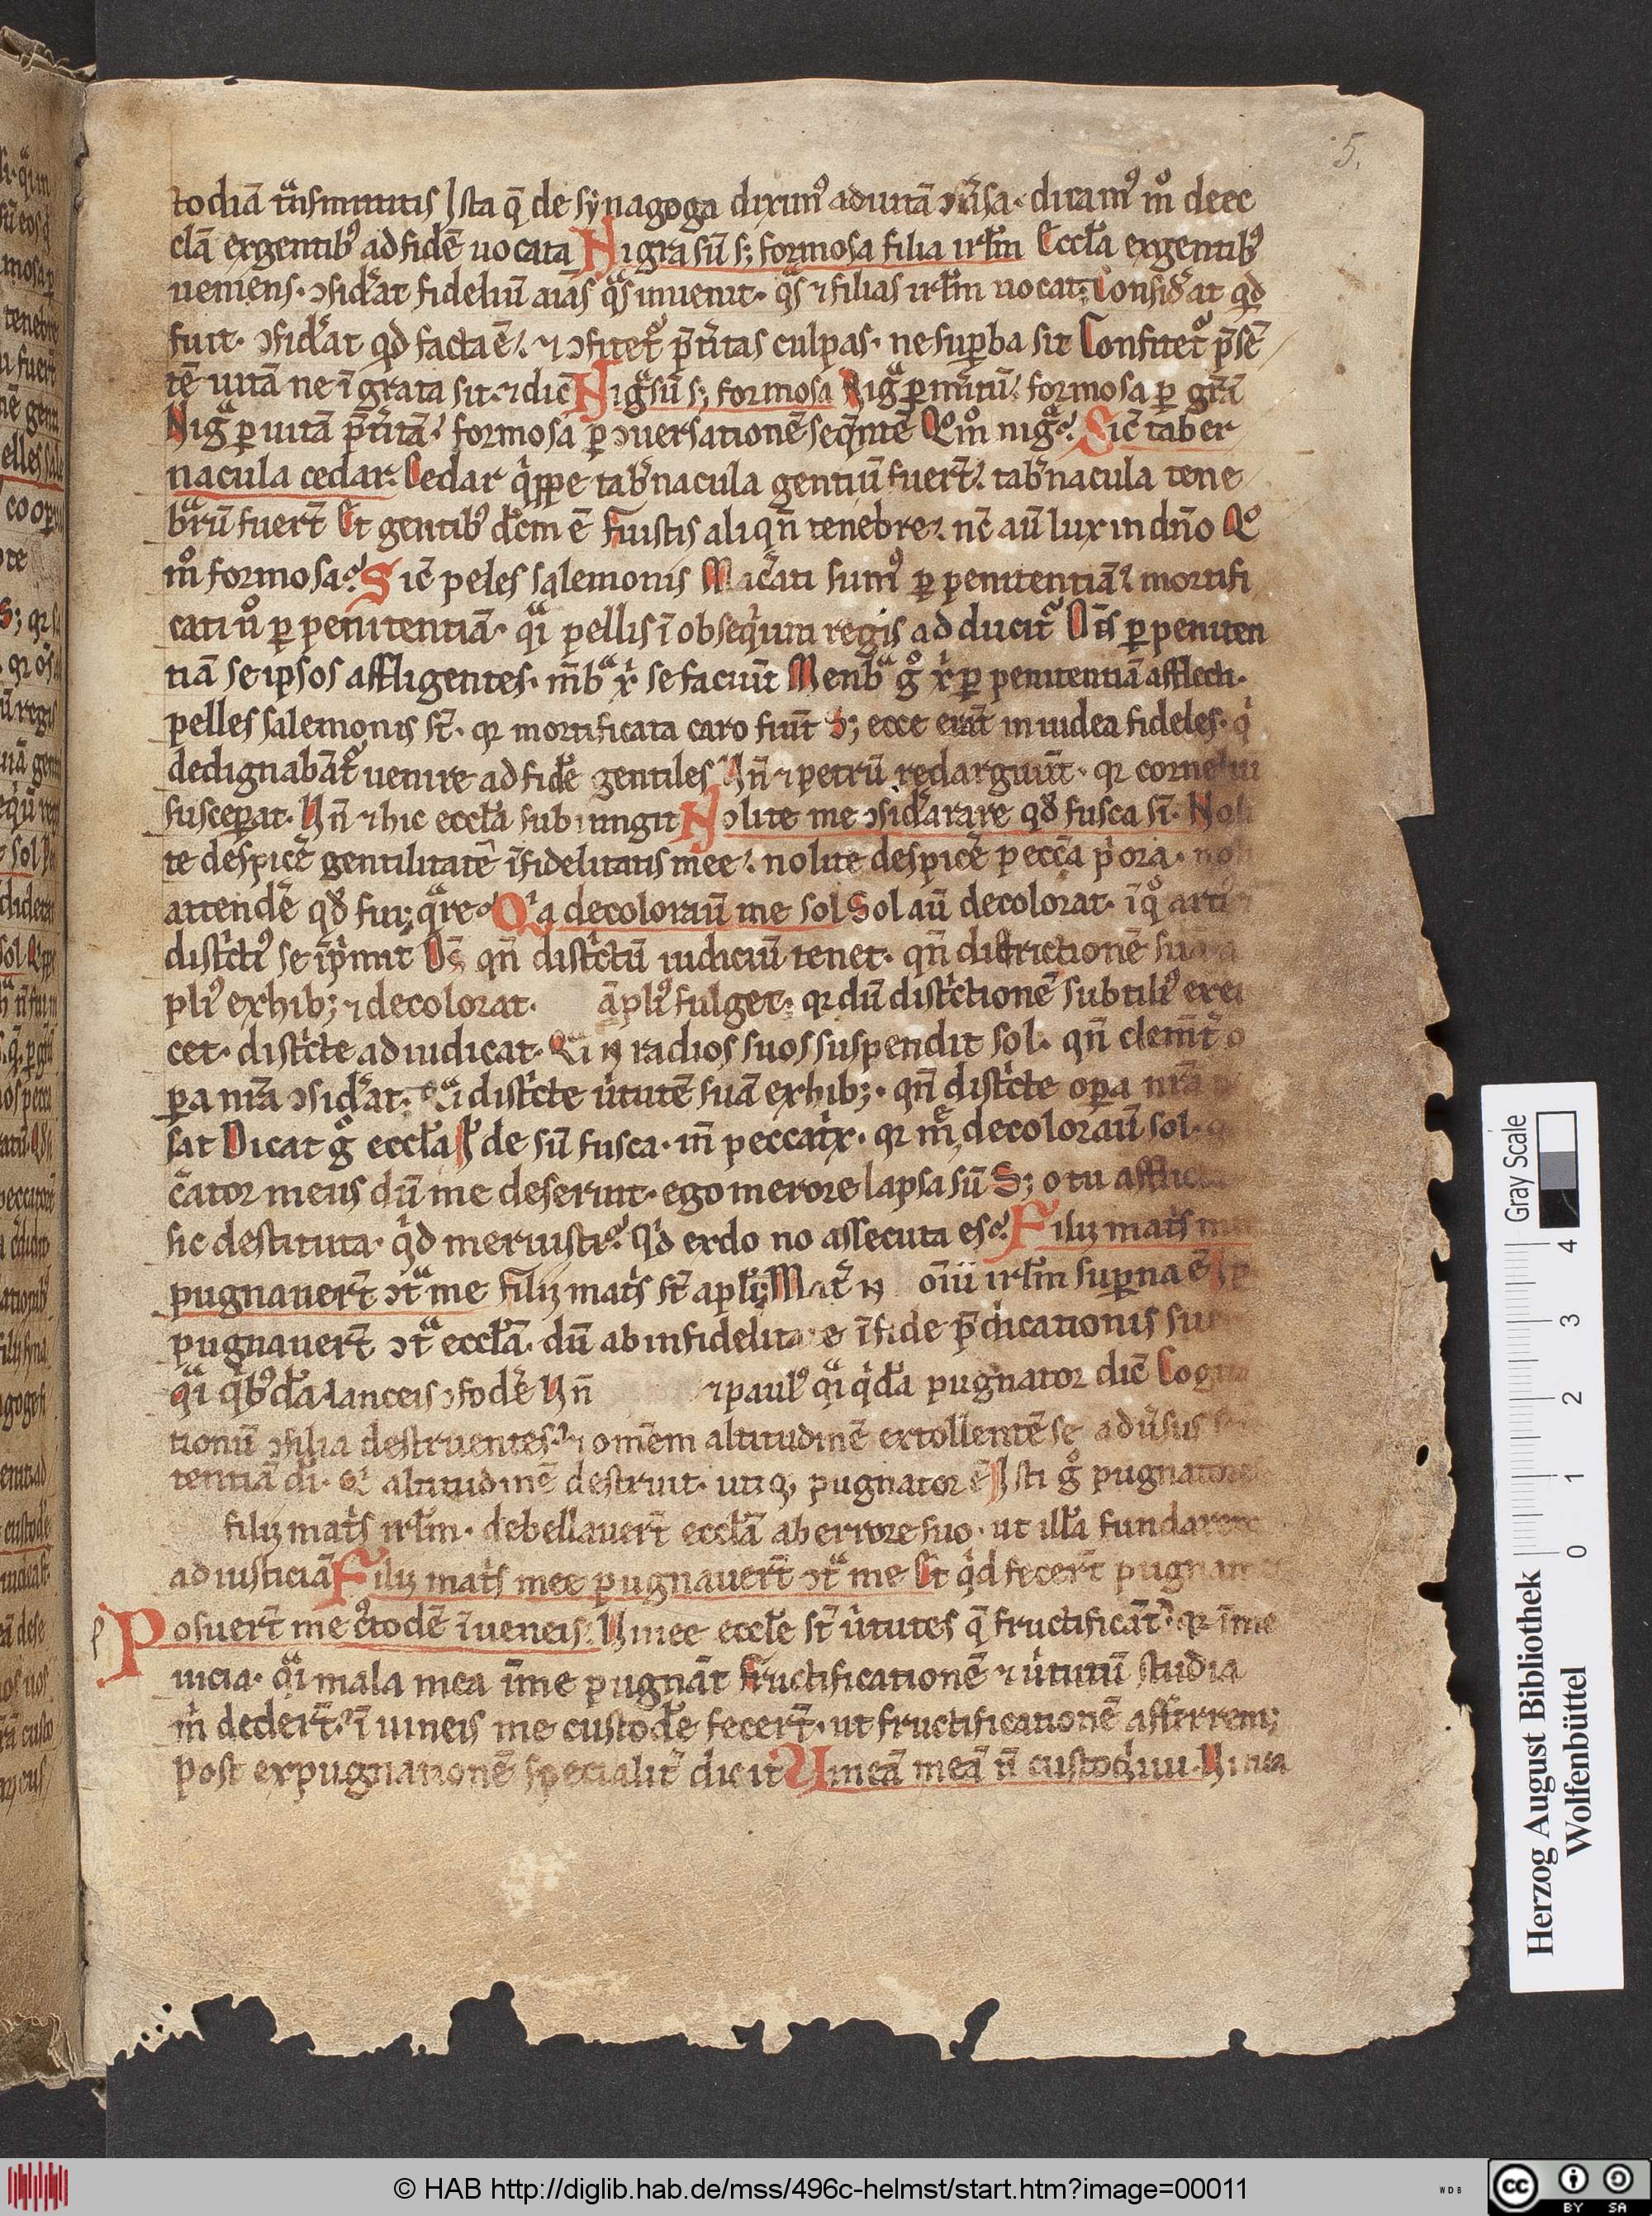 5.
todiā tᵃnsmittitis Ista q̄ de synagoga dixim᷒ ad uitā ꝯũsa· dicam᷒ m̊ de ec
clā ex gentib᷒ ad fidē uocata Nigra sū s; formosa filia irłm Eccła ex gentib᷒
ueniens· ꝯsid̾at fideliū aīas q̄s inuenit· q̄s ⁊ filias irłm uocat; Consid̾at qd
fuit· ꝯsid̾at qd facta ē· ⁊ ꝯfitet᷑ p̄t̾itas culpas· ne suꝑba sit Confitet᷑ p̄sē
tē uitā ne īgrata sit· ⁊ dic̄ Nigᵃ sū s; formosa Nigᵃ ꝑ m̾itū formosa ꝑ gr̄ā
Nigᵃ ꝑ uitā p̄t̾itā formosa ꝑ ꝯuersationē seq̄ntē Qōm̊ nigᵃ Sic̄ taber
nacula cedar· Cedar qͥppe tab̾nacula gentiū fuer̄t tab̾nacula tene
bᵃrū fuer̄t Et gentib᷒ dc̄m ē Fuistis aliqn̄ tenebre nc̄ au̅ lux in dn̄o Qo
m̊ formosa Sic̄ peles salemonis Macᵃti sum᷒ ꝑ penitentiā mortifi
cati u̾o ꝑ penitentiā· qᵃi pellis ī obseqͥum regis adducit᷑ Om̄s ꝑ peniten
tiā se ipsos affligentes· m̄bᵃ xͥ se faciūt Menbᵃ gͦ xͥ ꝑ penitentiā afflicti·
pelles salemonis st̄· qꝛ mortificata caro fiūt S; ecce erāt in iudea fideles· qͥ
dedignabāt᷑ uenire ad fidē gentiles Vn̄ ⁊ petrū redarguūt· qꝛ corneliū
susceꝑat· Vn̄ ⁊ hic eccła subiungit Nolite me ꝯsid̾arare qd̾ fusca sī· Noli
te despic̾e gentilitatē īfidelitatis mee nolite despic̾e pecc̄a pͥora· noli
attend̾e qd̾ fui; qᵃre Qͥa decolorauͥ me sol Sol au̅ decolorat· ī qͦ
dist̾ct᷒ se īpͥmit Ds̄ qn̄ dist̾ctū iudiciū tenet· qn̄ districtionē suā
pli᷒ exhib; ⁊ decolorat· āpli᷒ fulget· qꝛ dū dist̾ctionē subtili᷒ exer
cet· dist̾cte adiudicat· Qᵃi radios suos suspendit sol· qn̄ clem̄t̾ o
ꝑa nr̄a ꝯsid̾at· Qᵃi dist̾cte u̾tutē suā exhib;· qn̄ dist̾cte oꝑa nr̄a
sat Dicat gͦ eccła In̄ de sū fusca· in̄ peccat̾x· qꝛ m̄ decolorauͥ sol·
c̾ator meus dū me deseruit· ego merore lapsa sū S; o tu afflicta
sic destituta· qͥd meruisti Qͥd erdo no assecuta es Filii mat̾s mee
pugnauer̄t ꝯtᵃ me Filii mat̾s st̄ apłi; Mat̾ oīū irłm suꝑna ē
pugnauer̄t ꝯtᵃ eccłā· dū ab infidelita e ī fide p̄dicationis sue
qᵃi qͥb᷒dā lanceis ꝯfod̾e Vn̄ ⁊ paul᷒ qᵃi qͥdā pugnator dic̄ Cogita
tionū ꝯsilia destruentes ⁊ omēm altitudinē extollentē se adu̾sus
tentiā di· Qͥ altitudinē destruit· utiq; pugnator ē Isti gͦ pugnatores
filii mat̾s irłm· debellauer̄t eccłā ab errore suo· ut illā fundarent
ad iusticiā Filii mat̾s mee pugnauer̄t ꝯtᵃ me Et qͥd fecer̄t pugnantes
Posuer̄t me c᷒todē ī ueneis; Vinee eccłe st̄ u̾tutes q̄ fructificāt qꝛ ī me
uicia· qᵃi mala mea ī me pugnāt Fructificationē ⁊ u̾tutū studia
m̾ dedert̄ ī uineis me custodē fecer̄t· ut fructificationē afferrem;
post expugnationē specialit̾ dicit Vineā meā n̄ custodiui· Vinea
Gray Scale
0 1 2 3 4
Herzog August Bibliothek
Wolfenbüttel
© HAB http://diglib.hab.de/mss/496c-helmst/start.htm?image=00011
WDB
cc BY SA